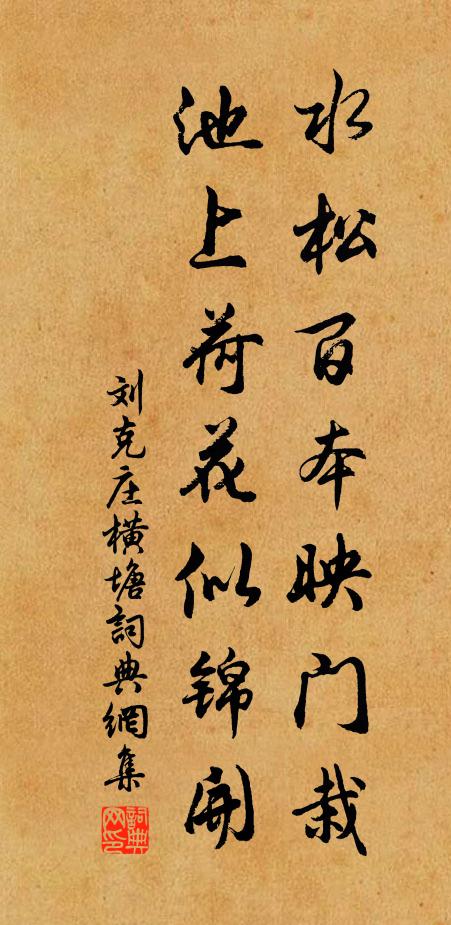 水松百本映门栽
池上荷花似锦开
刘克庄横塘詞典網集
詞典网印